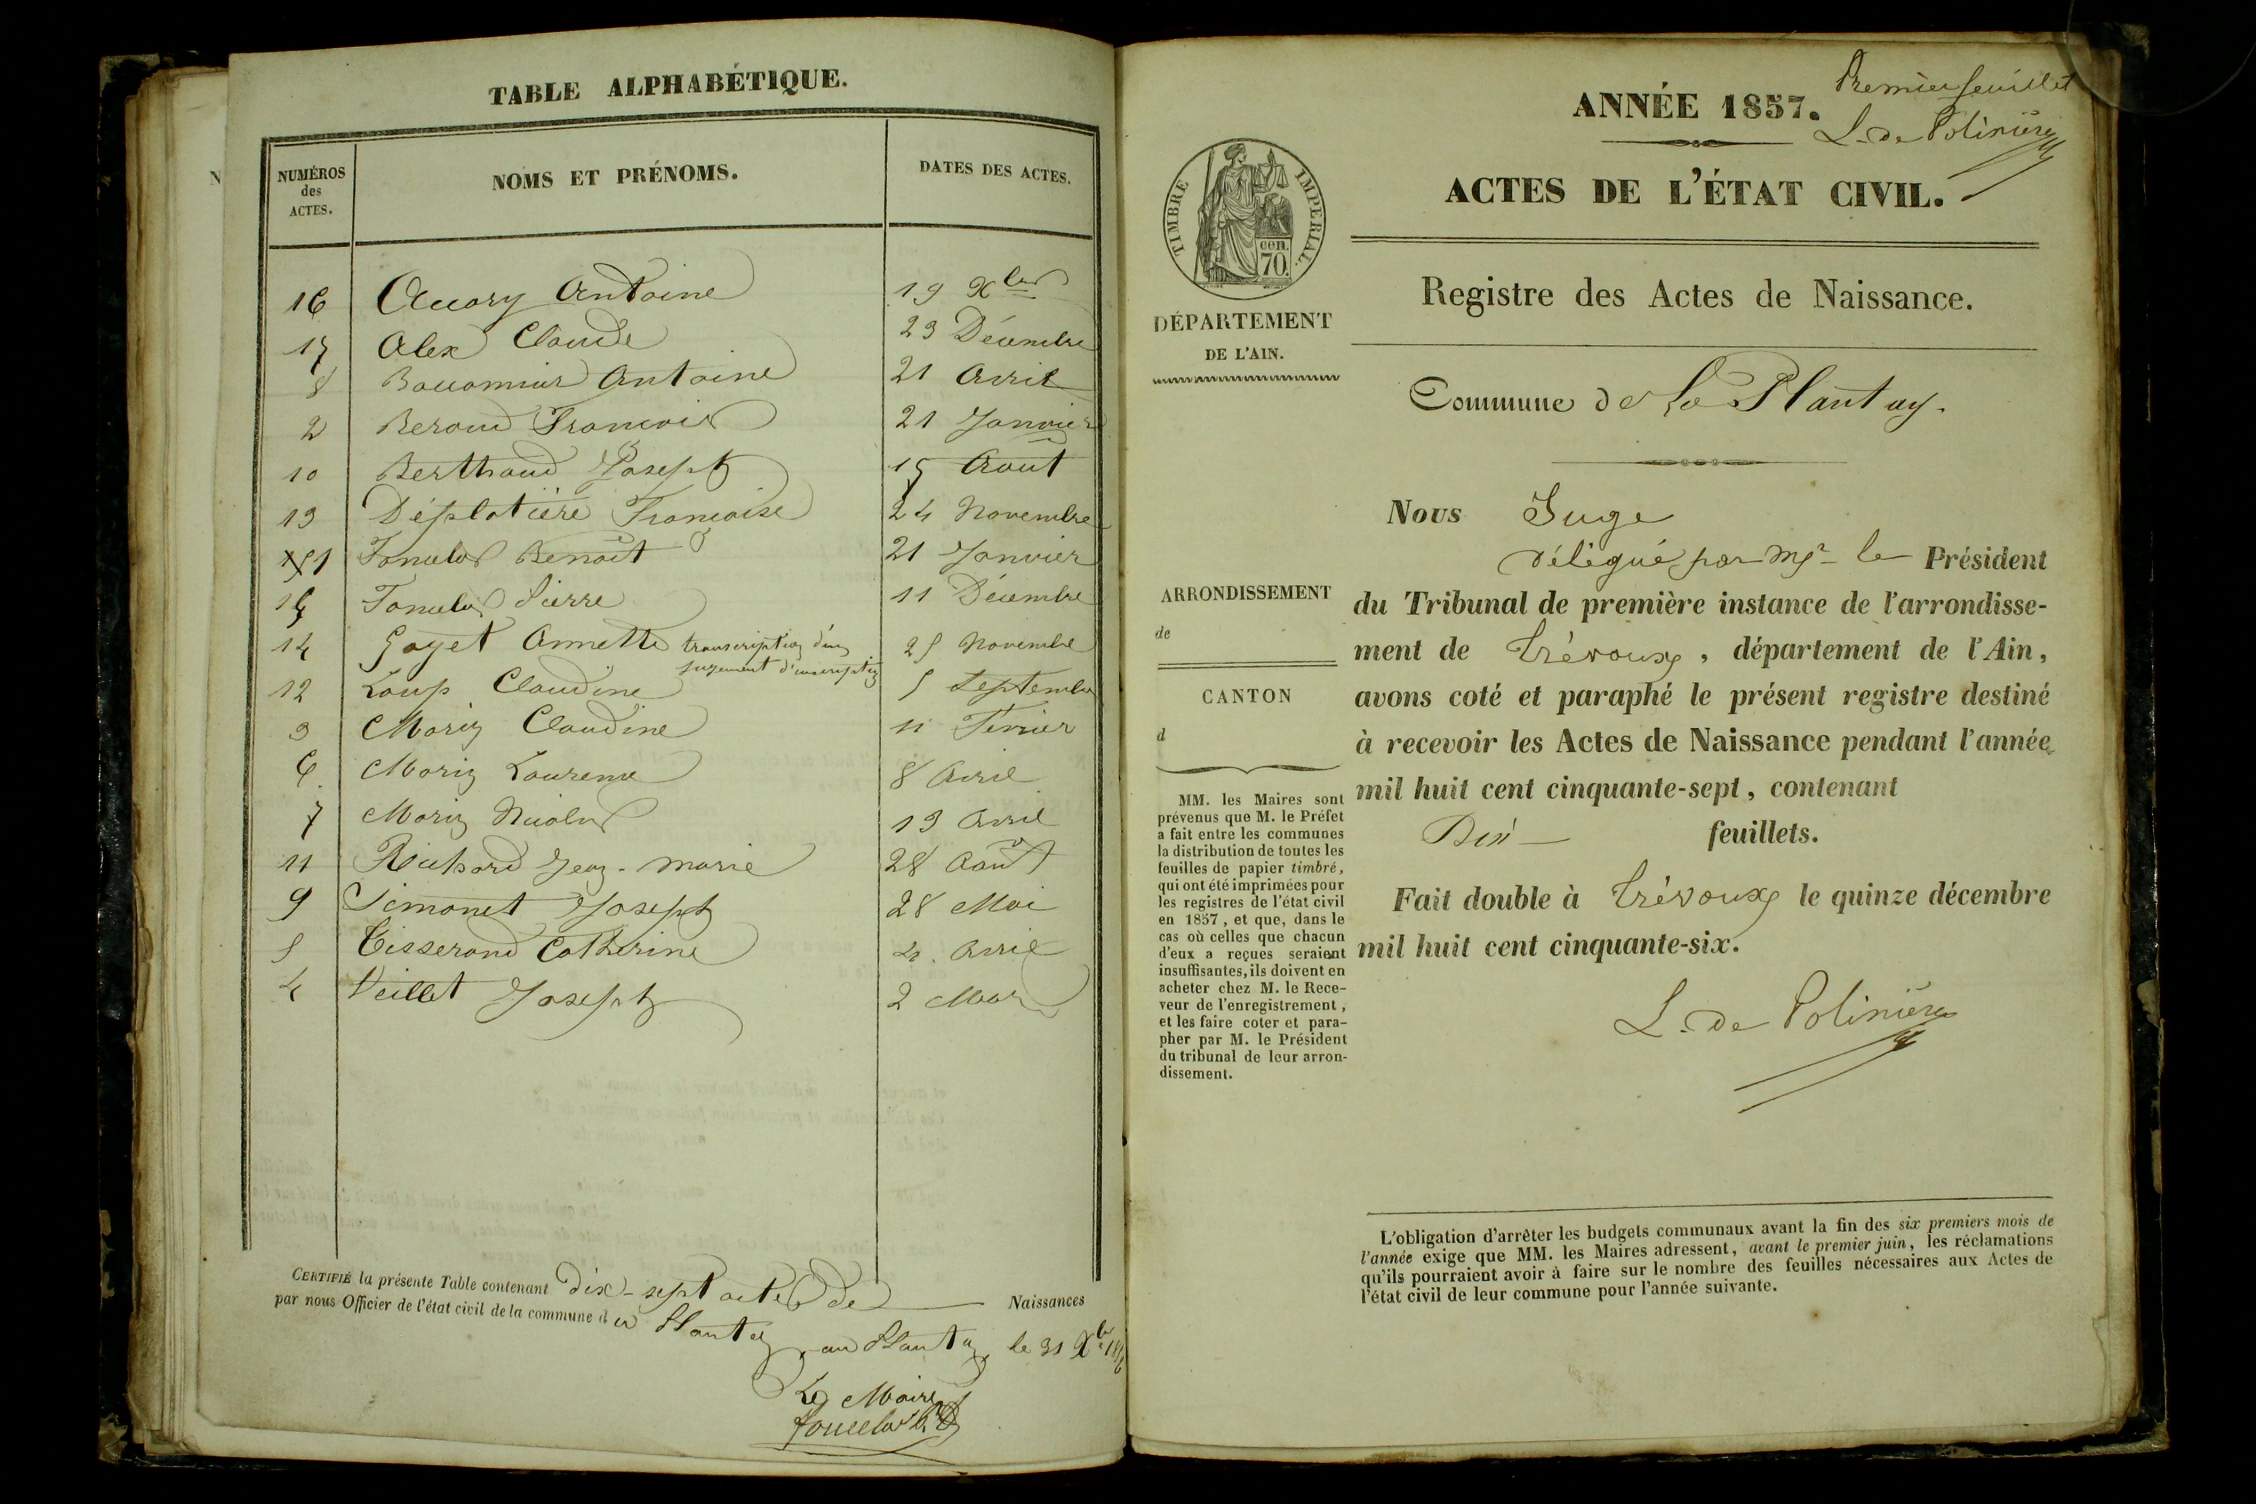 TABLE ALPHABÉTIQUE.
NUMÉROS
des
ACTES.
NOMS ET PRÉNOMS.
DATES DES ACTES.
16 Antoine 19 Xbre
17 Alex Claude 23 Décembre
8 Antoine 21 Avril
2 Beroud François 21 Janvier
10 Berthaud Joseph 15 Aout
13 Déplatière Françoise 24 Novembre
1 Benoît 21 Janvier
Pierre 11 Décembre
14 Goyet Annette transcription d'un 25 Novembre
jugement d'inscription
12 Loup Claudine 5 Septembre
3 Morin Claudine 11 Février
6 Morin Laurence 8 Avril
7 Morin Nicolas 13 Avril
11 Richard Jean-marie 28 Août
9 Simonet Joseph 28 Mai
5 Tisserand Catherine Avril
4 Veillet Joseph 2 Mars
CERTIFIÉ la présente Table contenant dix-sept actes de Naissances
par nous Officier de l'état civil de la commune d u Plantay
au Plantay, le 31 Xbre 1856
Le Maire
ANNÉE 1857.
Premier feuillet
L. de Polinière
ACTES DE L'ÉTAT CIVIL.
Registre des Actes de Naissance.
TIMBRE IMPERIAL.
cen.
70.
DÉPARTEMENT
DE L'AIN.
Commune de Le Plantay.
Nous Juge
délégué par Mr le Président
du Tribunal de première instance de l'arrondisse-
ment de Trévoux, département de l'Ain,
avons coté et paraphé le présent registre destiné
à recevoir les Actes de Naissance pendant l'année
mil huit cent cinquante-sept, contenant
Dix feuillets.
Fait double à Trévoux le quinze décembre
mil huit cent cinquante-six.
L. de Polinière
ARRONDISSEMENT
de
CANTON
d
MM. les Maires sont
prévenus que M. le Préfet
a fait entre les communes
la distribution de toutes les
feuilles de papier timbré,
qui ont été imprimées pour
les registres de l'état civil
en 1857, et que, dans le
cas où celles que chacun
d'eux a reçues seraient
insuffisantes, ils doivent en
acheter chez M. le Rece-
veur de l'enregistrement,
et les faire coter et para-
pher par M. le Président
du tribunal de leur arron-
dissement.
L'obligation d'arrêter les budgets communaux avant la fin des six premiers mois de
l'année exige que MM. les Maires adressent, avant le premier juin, les réclamations
qu'ils pourraient avoir à faire sur le nombre des feuilles nécessaires aux Actes de
l'état civil de leur commune pour l'année suivante.